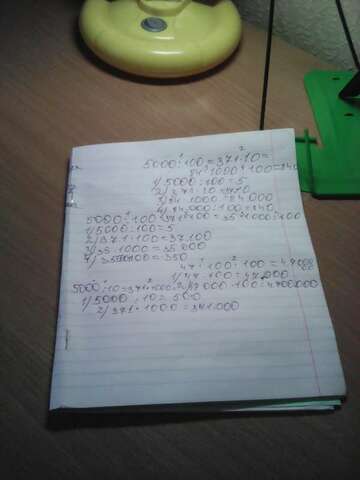 5000 : 100 = 371 · 10 =
84 · 1000 : 100 = 840
1) 5000 : 100 = 5
2) 371 · 10 =
3) 84 · 1000 = 84.000
4) 84.000 : 100 = 840
5000 : 100 = 371 · 100 = 35 · 1000 : 100
1) 5000 : 100 = 5
2) 371 · 100 = 37.100
3) 35 · 1000 = 35.000
4) : 100 = 350
47 · 100 · 100 = 47000
1) 47 · 100 = 47.000
5000 : 10 = 371 · 1000 = 2) 47.000 · 100 = 4.700.000
1) 5000 : 10 = 500
2) 371 · 1000 = 371.000